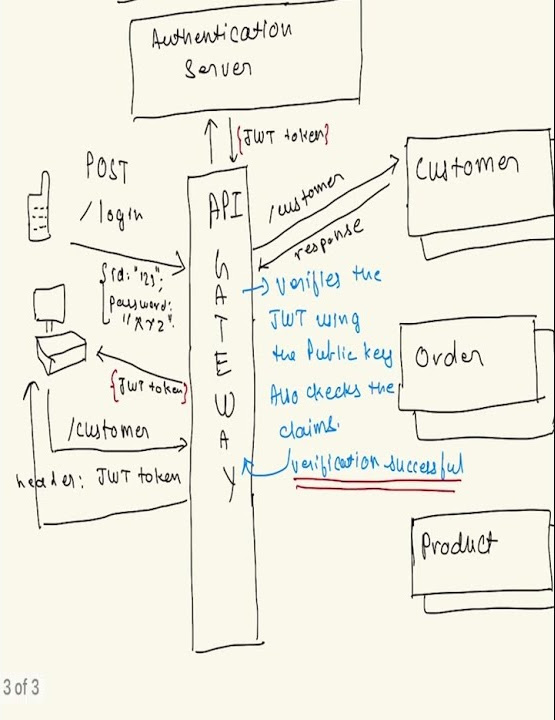 Authentication
Server
{JWT token}
POST
/login
{id: "123",
password:
"xyz".
{JWT token}
/customer
header: JWT token
API
GATEWAY
/customer
response
Verifies the
JWT using
the Public key
Also checks the
claims.
verification successful
Customer
Order
Product
3 of 3